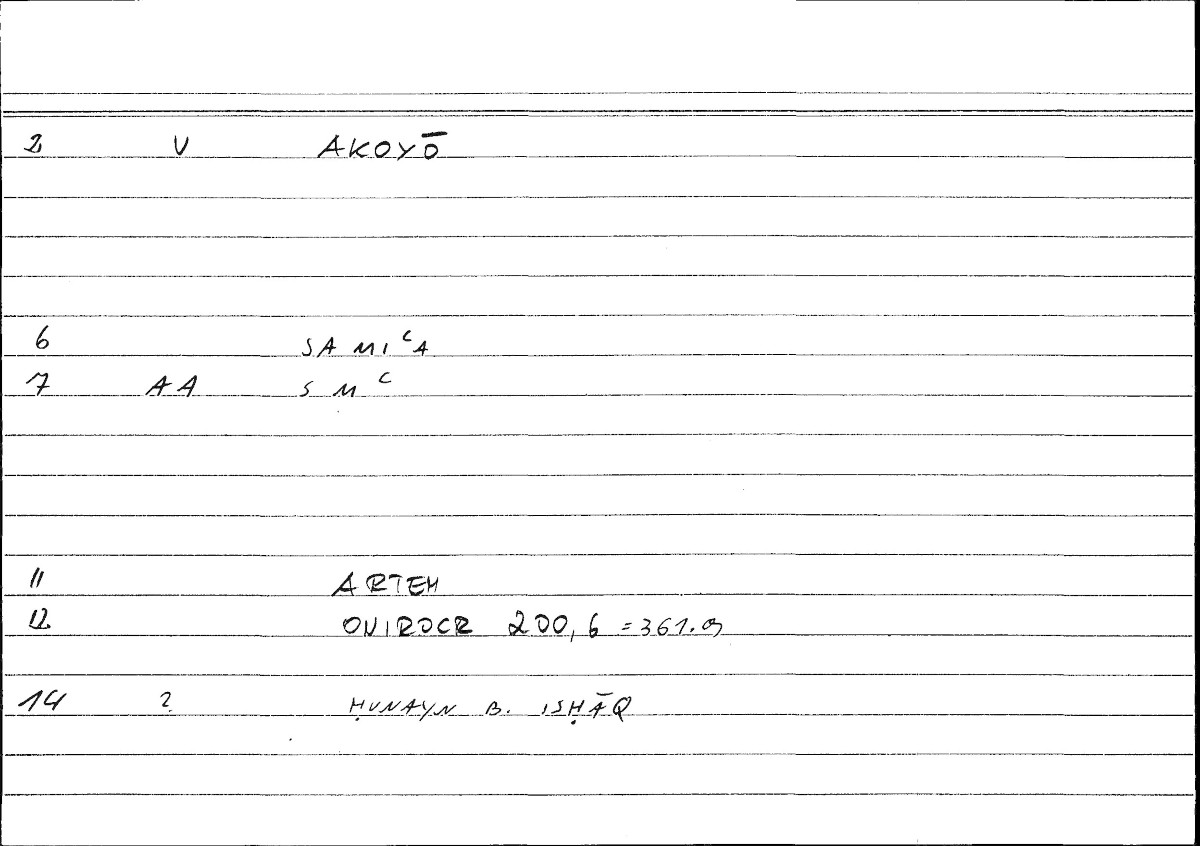 2 V AKOYŌ
6 SAMIʿA
7 AA SMʿ
11 ARTEM
12 ONIROCR 200,6 = 361.9
14 2 ḤUNAYN B. ISḤĀQ